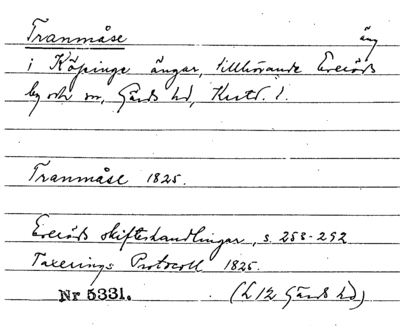 Tranmåse äng
i Köpinge ängar, tillhörande Everöds
by och sn, Gärds hd, Krist. l.
Tranmåse 1825.
Everöds skifteshandlingar, s. 253-292
Taxerings Protocoll 1825.
Nr 5331. (L 12 Gärds hd)